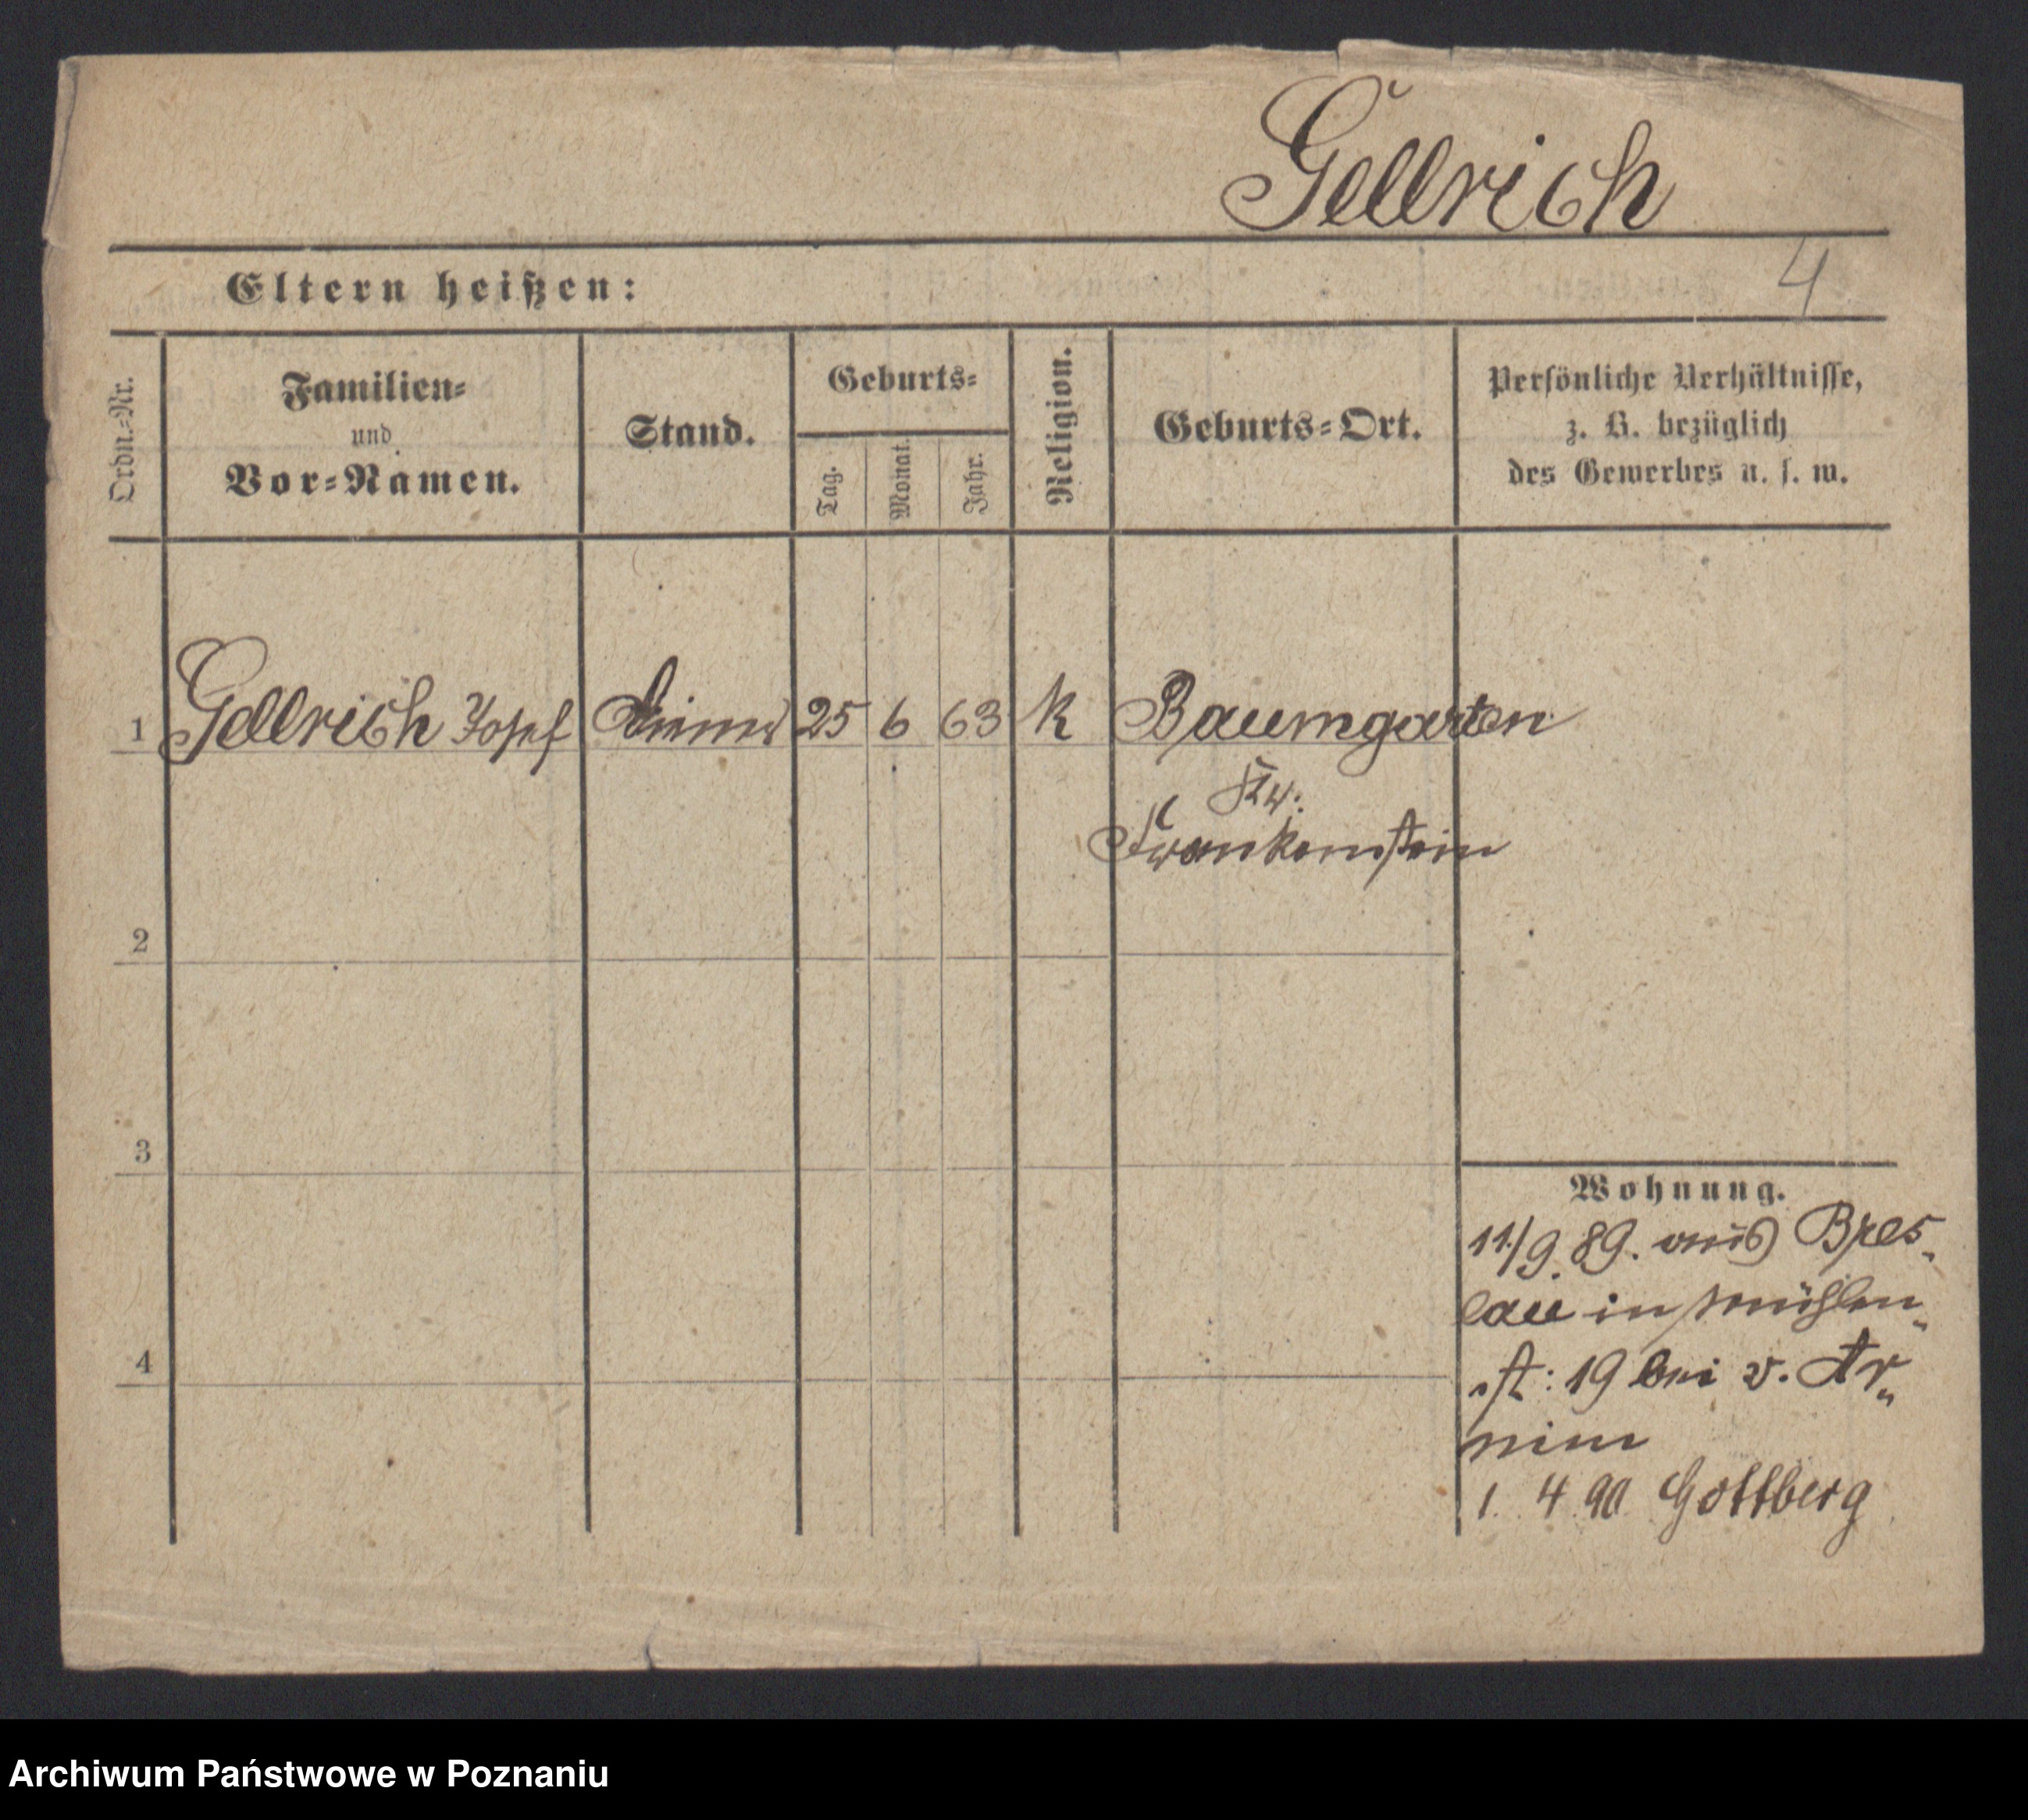 Gellrich
4
Eltern heißen:
Ordn.-Nr.
Familien-
und
Vor-Namen.
Stand.
Geburts-
Tag.
Monat.
Jahr.
Religion.
Geburts-Ort.
Persönliche Verhältnisse,
z. B. bezüglich
des Gewerbes u. s. w.
1 Gellrich Josef Diener 25 6 63 k Baumgarten
Kr.
Frankenstein
2
3
4
Wohnung.
11/9. 89. aus Bres„
lau in Mühlen„
st: 19 bei v. Ar„
nim
1. 4. 90 Gottberg
Archiwum Państwowe w Poznaniu